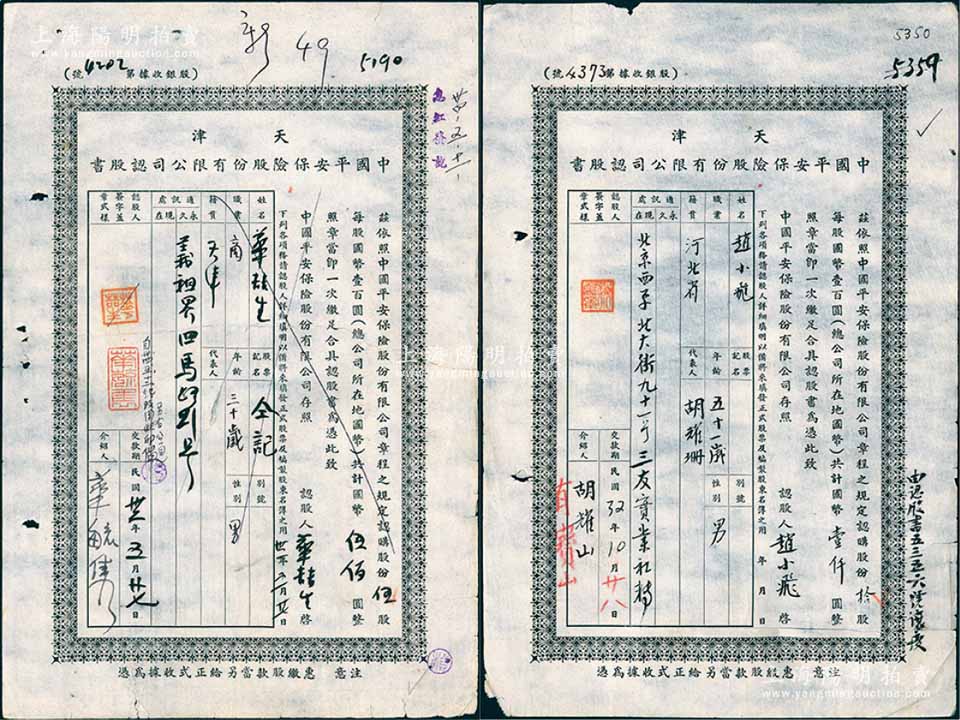 上海陽明拍賣
www.yangmingauction.com
49
5190
（號4202第據收銀股）
津 天
書股認司公限有份股險保安平國中
茲依照中國平安保險股份有限公司章程之規定認購股份伍股
每股國幣壹百圓（總公司所在地國幣）共計國幣伍佰圓整
照章當卽一次繳足合具認股書爲憑此致
中國平安保險股份有限公司存照
認股人 啓
下列各項務請認股人詳細填明以備將來填發正式股票及編製股東名簿之用
年 月 日
姓名
股票記名 仝記
別號
職業 商
年齡 三十歲
性別 男
籍貫 天津
代表人
通訊處 永久 現在
義租界四馬路
認股人簽字蓋章式樣
交款期 民國 年五月廿七日
介紹人
注意 惠繳股款當另給正式收據爲憑
上海陽明拍賣
www.yangmingauction.com
5350
5359
（號4373第據收銀股）
津 天
書股認司公限有份股險保安平國中
茲依照中國平安保險股份有限公司章程之規定認購股份拾股
每股國幣壹百圓（總公司所在地國幣）共計國幣壹仟圓整
照章當卽一次繳足合具認股書爲憑此致
中國平安保險股份有限公司存照
認股人趙小飛啓
下列各項務請認股人詳細填明以備將來填發正式股票及編製股東名簿之用
年 月 日
姓名 趙小飛
股票記名
別號
職業
年齡 五十一歲
性別 男
籍貫 河北省
代表人 胡耀珊
通訊處 永久 現在
北京西單北大街九十一号三友實業社轉
認股人簽字蓋章式樣
交款期 民國32年10月廿八日
介紹人 胡耀山
注意 惠繳股款當另給正式收據爲憑
上海陽明拍賣
www.yangmingauction.com